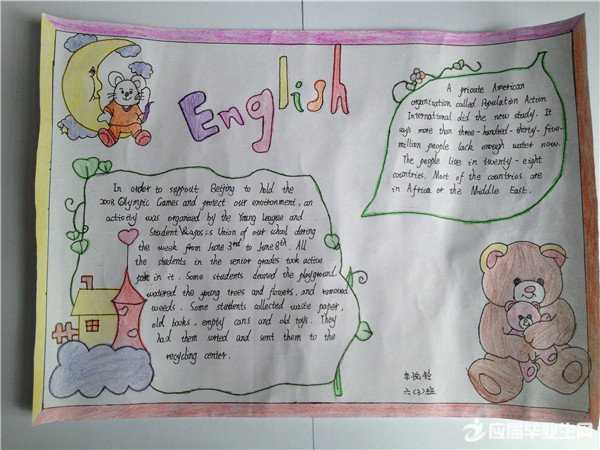 English
A private American
organization called Population Action
International did the new study. It
says more than three-hundred-thirty-five-
million people lack enough water now.
The people live in twenty-eight
countries. Most of the countries are
in Africa or the Middle East.
In order to support Beijing to hold the
2008 Olympic Games and protect our environment, an
activity was organized by the Young League and
Student Union of our school during
the week from June 3rd to June 8th. All
the students in the senior grades took active
in it. Some students cleaned the playground,
watered the young trees and flowers, and removed
weeds. Some students collected waste paper,
old books, empty cans and old toys. They
had them sorted and sent them to the
recycling center.
六(3)班
应届毕业生网